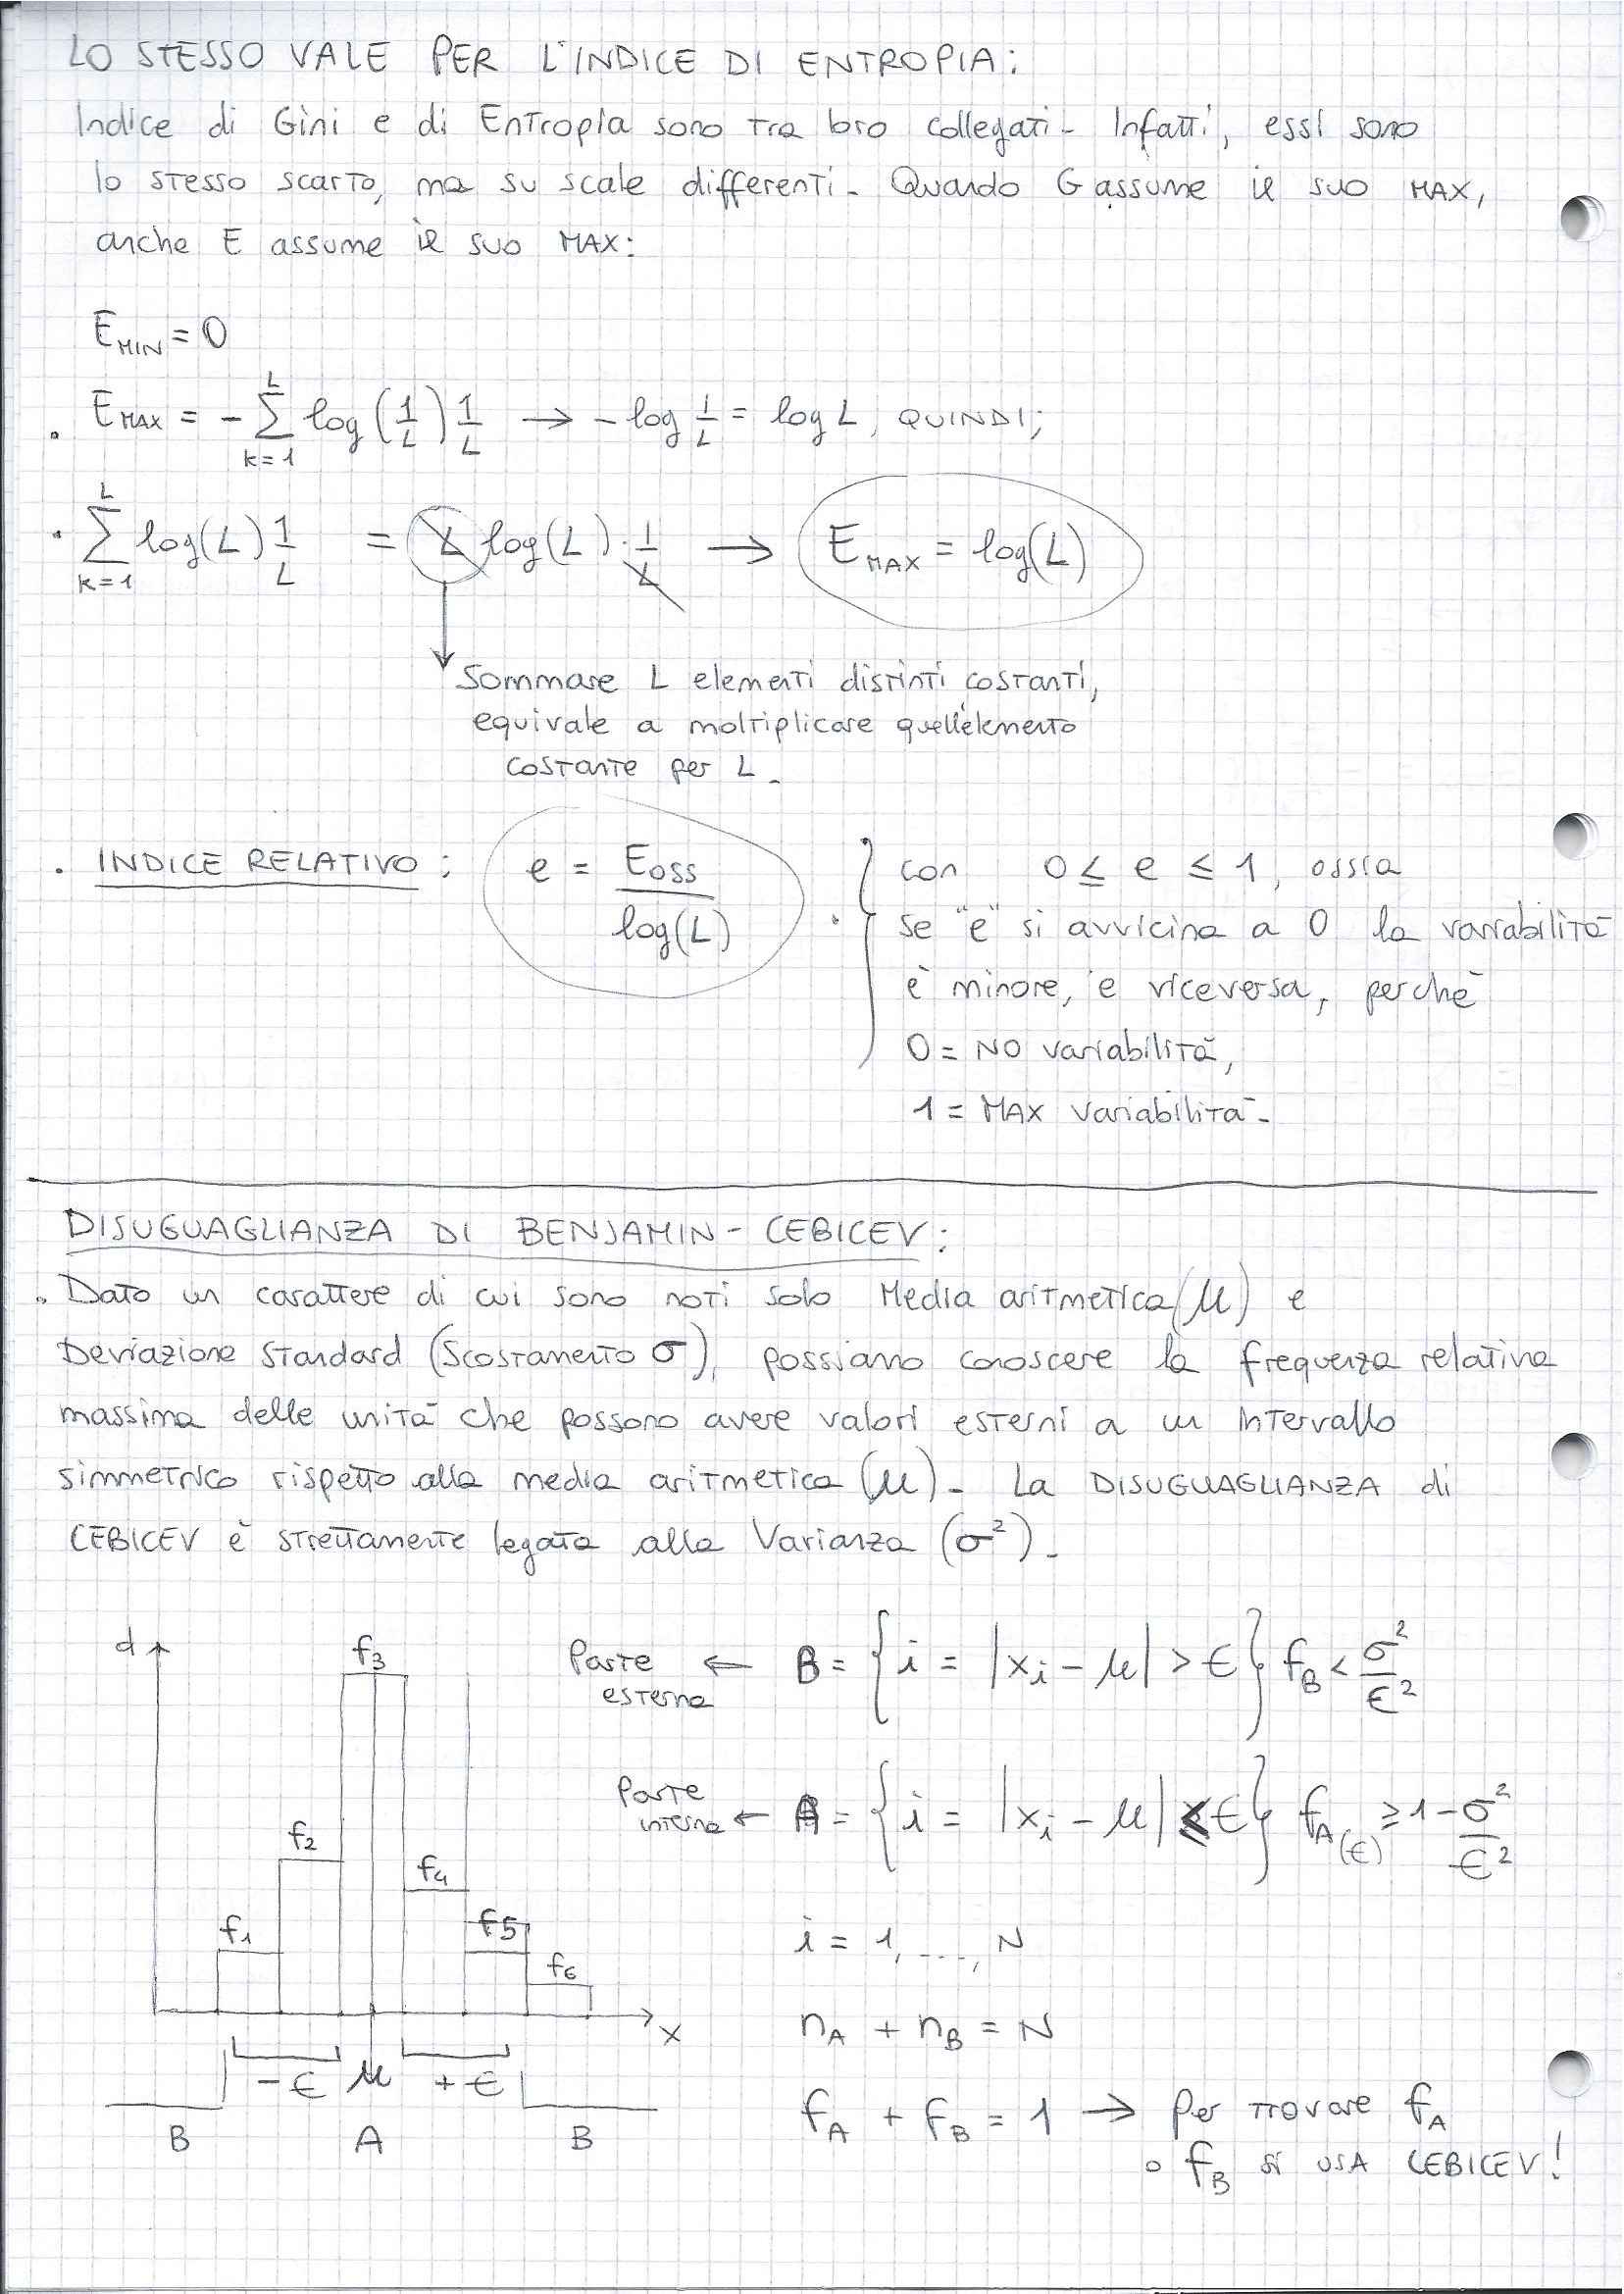 LO STESSO VALE PER L'INDICE DI ENTROPIA:
Indice di Gini e di Entropia sono tra loro collegati. Infatti, essi sono
lo stesso scarto, ma su scale differenti. Quando G assume il suo MAX,
anche E assume il suo MAX:
E_MIN = 0
. E_MAX = - ∑_{k=1}^{L} log(1/L) 1/L → - log 1/L = log L, QUINDI;
. ∑_{k=1}^{L} log(L) 1/L = L log(L) · 1/L → E_MAX = log(L)
Sommare L elementi distinti costanti,
equivale a moltiplicare quell'elemento
costante per L.
. INDICE RELATIVO: e = E_OSS / log(L)
. { con 0 ≤ e ≤ 1, ossia
se "e" si avvicina a 0 la variabilità
è minore, e viceversa, perchè
0 = NO variabilità,
1 = MAX variabilità.
DISUGUAGLIANZA DI BENJAMIN - CEBICEV:
. Dato un carattere di cui sono noti solo Media aritmetica (μ) e
Deviazione Standard (Scostamento σ), possiamo conoscere la frequenza relativa
massima delle unità che possono avere valori esterni a un intervallo
simmetrico rispetto alla media aritmetica (μ). La DISUGUAGLIANZA di
CEBICEV è strettamente legata alla Varianza (σ²).
d
f₃
f₂
f₄
f₁
f5
f₆
x
-ϵ μ +ϵ
B A B
Parte esterna ← B = { i = |x_i - μ| > ϵ } f_B < σ²/ϵ²
Parte interna ← A = { i = |x_i - μ| ≤ ϵ } f_A(ϵ) ≥ 1 - σ²/ϵ²
i = 1, ..., N
n_A + n_B = N
f_A + f_B = 1 → per trovare f_A
o f_B si USA CEBICEV!